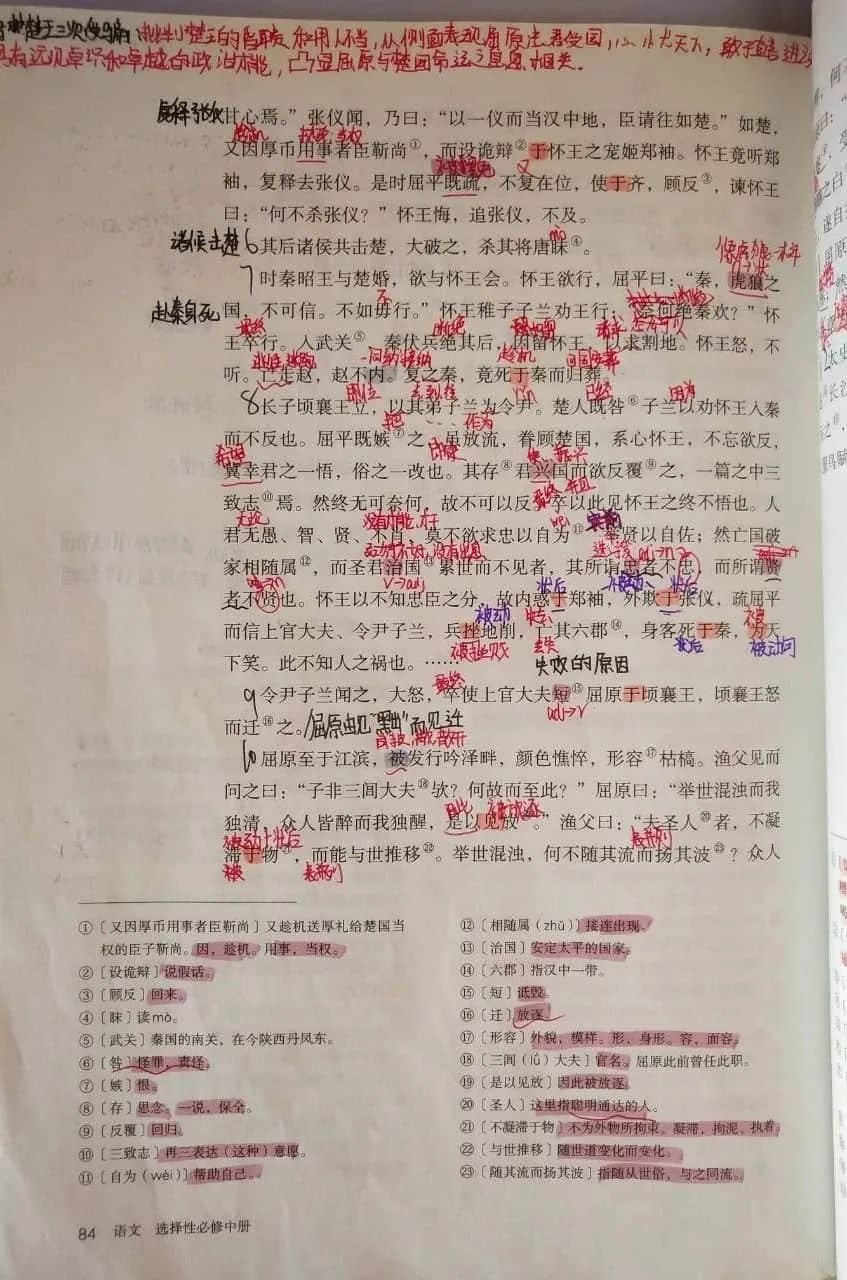 楚王三次受骗 批判楚王的昏聩和用人不当,从侧面表现屈原忠君爱国,心忧天下,敢于直言进
具有远见卓识和卓越的政治才能,凸显屈原与楚国命运之息息相关。
复释张仪
甘心焉。”张仪闻,乃曰:“以一仪而当汉中地,臣请往如楚。”如楚,
趁机 当权
又因厚币用事者臣靳尚①,而设诡辩②于怀王之宠姬郑袖。怀王竟听郑
又
袖,复释去张仪。是时屈平既疏,不复在位,使于齐,顾反③,谏怀王
曰:“何不杀张仪?”怀王悔,追张仪,不及。
诸侯击楚 mò
6其后诸侯共击楚,大破之,杀其将唐昧④。
7时秦昭王与楚婚,欲与怀王会。怀王欲行,屈平曰:“秦,虎狼之
赴秦身死 不
国,不可信。不如毋行。”怀王稚子子兰劝王行:“奈何绝秦欢?”怀
最终 断绝
王卒行。入武关⑤,秦伏兵绝其后,因留怀王,以求割地。怀王怒,不
听。亡走赵,赵不内。复之秦,竟死于秦而归葬。
因为
8长子顷襄王立,以其弟子兰为令尹。楚人既咎⑥子兰以劝怀王入秦
把……作为
而不反也。屈平既嫉⑦之,虽放流,眷顾楚国,系心怀王,不忘欲反,
希望
冀幸君之一悟,俗之一改也。其存⑧君兴国而欲反覆⑨之,一篇之中三
致志⑩焉。然终无可奈何,故不可以反。卒以此见怀王之终不悟也。人
无论 wèi
君无愚、智、贤、不肖,莫不欲求忠以自为⑪,举贤以自佐;然亡国破
家相随属⑫,而圣君治国⑬累世而不见者,其所谓忠者不忠,而所谓贤
v→adj 状后 状后
者不贤也。怀王以不知忠臣之分,故内惑于郑袖,外欺于张仪,疏屈平
被动 失去
而信上官大夫、令尹子兰,兵挫地削,亡其六郡⑭,身客死于秦,为天
失去 失败的原因 状后 被动句
下笑。此不知人之祸也。……
最终
9令尹子兰闻之,大怒,卒使上官大夫短⑮屈原于顷襄王,顷襄王怒
adj→v
而迁⑯之。
10屈原至于江滨,被发行吟泽畔,颜色憔悴,形容⑰枯槁。渔父见而
问之曰:“子非三闾大夫⑱欤?何故而至此?”屈原曰:“举世混浊而我
因此 被放逐
独清,众人皆醉而我独醒,是以见放⑲。”渔父曰:“夫圣人⑳者,不凝
被动 状后 表承列
滞于物㉑,而能与世推移㉒。举世混浊,何不随其流而扬其波㉓?众人
被
①〔又因厚币用事者臣靳尚〕又趁机送厚礼给楚国当
权的臣子靳尚。因,趁机。用事,当权。
②〔设诡辩〕说假话。
③〔顾反〕回来。
④〔昧〕读mò。
⑤〔武关〕秦国的南关,在今陕西丹凤东。
⑥〔咎〕怪罪,责怪。
⑦〔嫉〕恨。
⑧〔存〕思念。一说,保全。
⑨〔反覆〕回归。
⑩〔三致志〕再三表达(这种)意愿。
⑪〔自为(wèi)〕帮助自己。
⑫〔相随属(zhǔ)〕接连出现。
⑬〔治国〕安定太平的国家。
⑭〔六郡〕指汉中一带。
⑮〔短〕诋毁。
⑯〔迁〕放逐。
⑰〔形容〕外貌,模样。形,身形。容,面容。
⑱〔三闾(lǘ)大夫〕官名。屈原此前曾任此职。
⑲〔是以见放〕因此被放逐。
⑳〔圣人〕这里指聪明通达的人。
㉑〔不凝滞于物〕不为外物所拘束。凝滞,拘泥,执着。
㉒〔与世推移〕随世道变化而变化。
㉓〔随其流而扬其波〕指随从世俗,与之同流。
84 语文 选择性必修中册